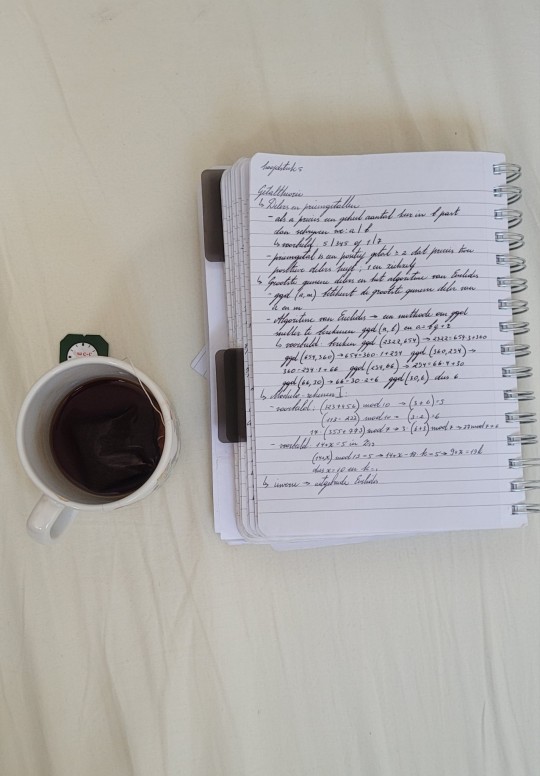 hoofdstuk 5
Getaltheorie
↳ Delers en priemgetallen
- als a precies een geheel aantal keer in b past
dan schrijven we: a | b
↳ voorbeeld 5 | 345 of 1 | 7
- priemgetal is een positief getal ≥ 2 dat precies twee
positieve delers heeft; 1 en zichzelf
↳ Grootste gemene deler en het algoritme van Euclides
- ggd (n, m) betekent de grootste gemene deler van
n en m
- Algoritme van Euclides → een methode om ggd
sneller te berekenen ggd (a, b) en a = b q + r
↳ voorbeeld bereken ggd (2322, 654) → 2322 = 654·3+360
ggd (654, 360) → 654 = 360·1+294 ggd (360, 294) →
360 = 294·1+66 ggd (294, 66) → 294 = 66·4+30
ggd (66, 30) → 66 = 30·2+6 ggd (30, 6) dus 6
↳ Modulo-rekenen
- voorbeeld: mod 10 =
mod 10 =
mod 7
- voorbeeld 14+x = 5 in
(14+x) mod 13 = 5 →
dus x =
↳ inverse → uitgebreide Euclides